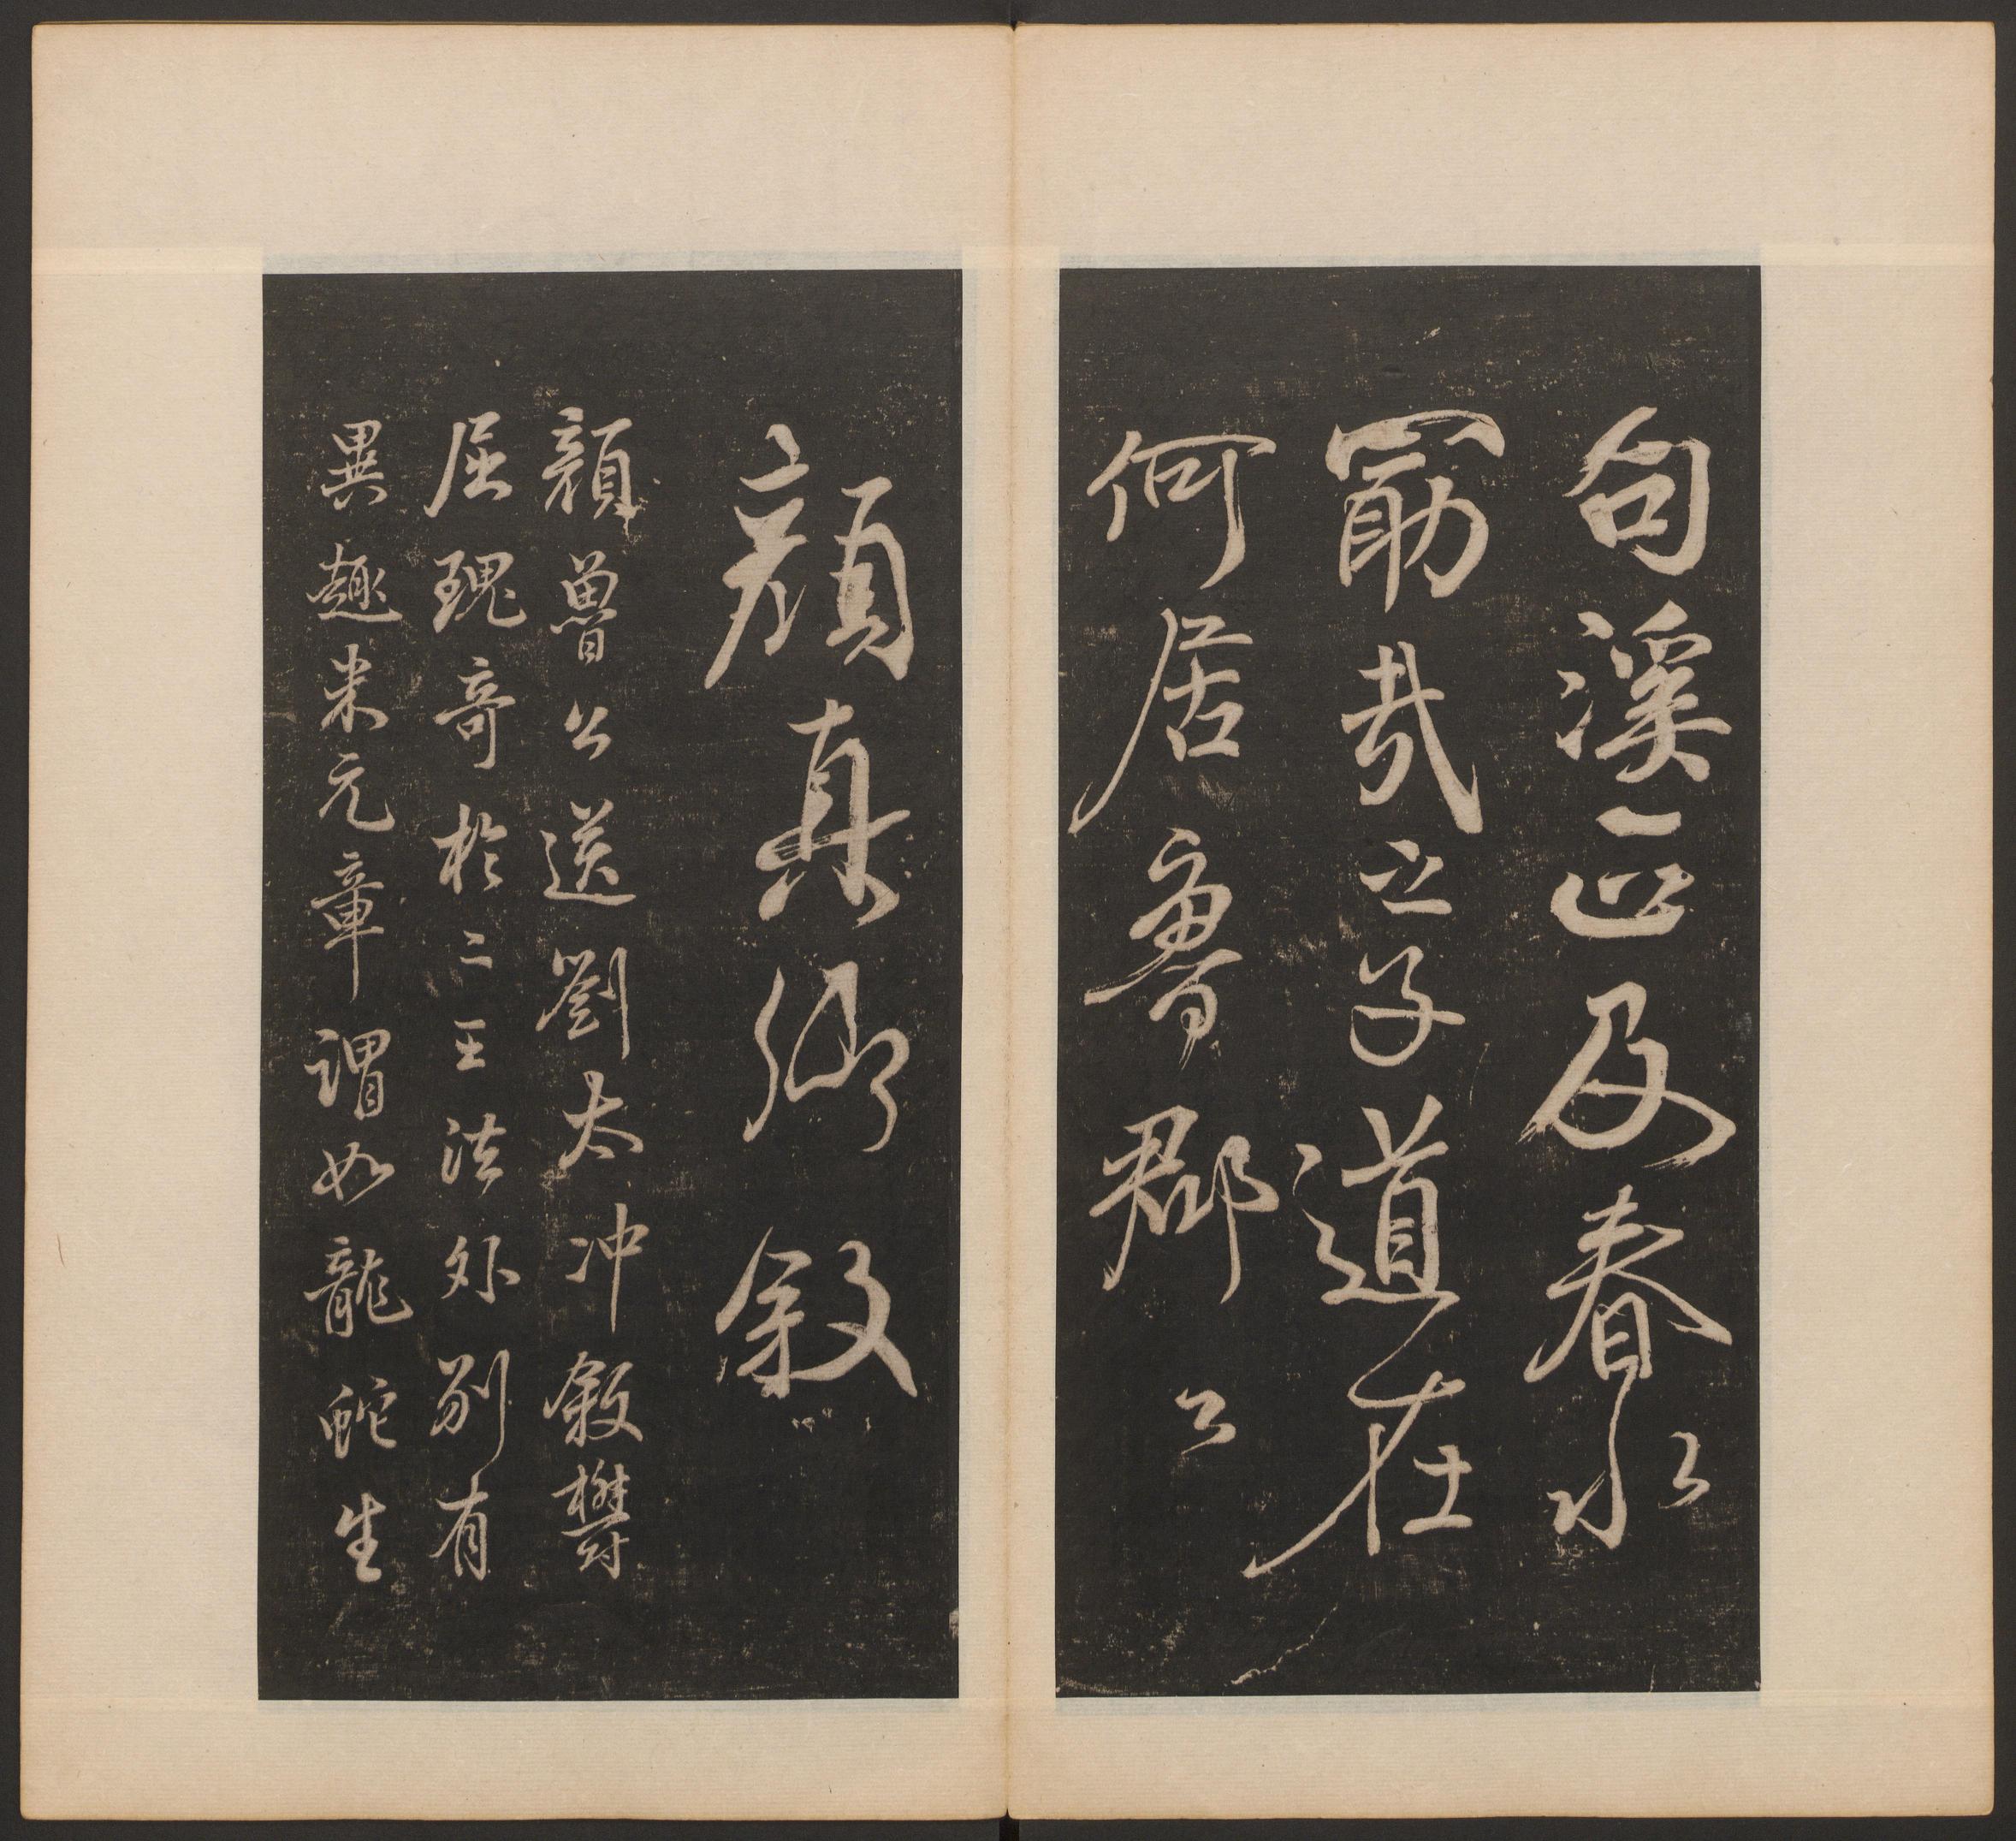 句溪正及春水
勖哉之子道在
何居魯郡公
顏真卿敘
顏魯公送劉太沖敘欝
屈瑰奇於二王法外別有
異趣米元章謂如龍蛇生